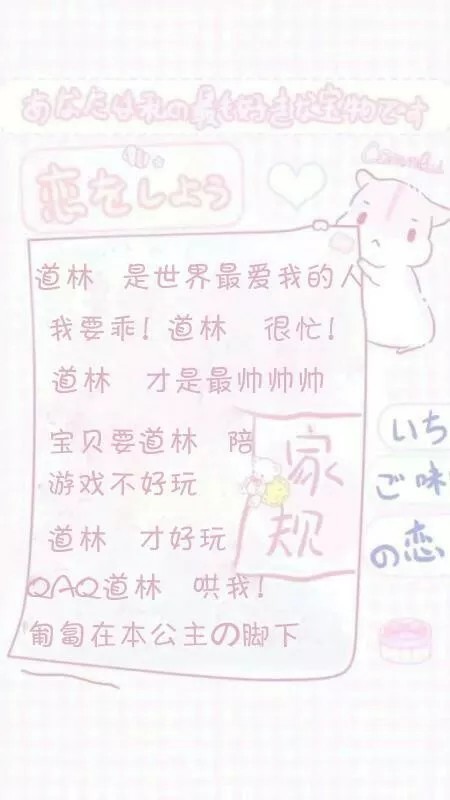 あなたは私の最も好きな宝物です
恋をしよう
道林 是世界最爱我的人
我要乖！道林 很忙！
道林 才是最帅帅帅
宝贝要道林 陪
游戏不好玩
道林 才好玩
QAQ道林 哄我！
匍匐在本公主の脚下
家规
いち
ご味
の恋